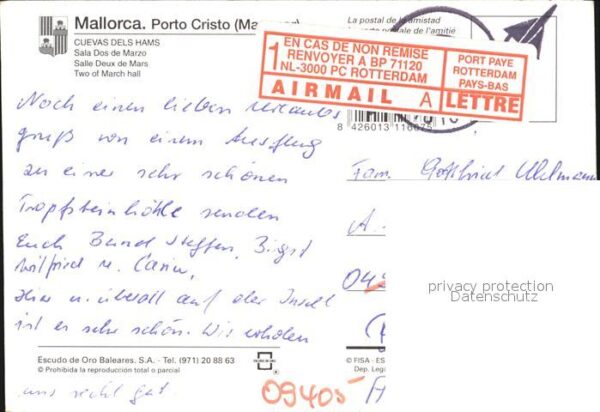 Mallorca. Porto Cristo (Ma
CUEVAS DELS HAMS
Sala Dos de Marzo
Salle Deux de Mars
Two of March hall
La postal de la amistad
postale de l'amitié
1 EN CAS DE NON REMISE
RENVOYER A BP 71120
NL-3000 PC ROTTERDAM
AIRMAIL A
PORT PAYE
ROTTERDAM
PAYS-BAS
LETTRE
8 426013 116675
Noch einen lieben Urlaubs
gruß von einem Ausflug
zu einer sehr schönen
Tropfsteinhöhle senden
Euch Bernd Steffen, Birgit
Wilfried u. Carin,
Hier u. überall auf der Insel
ist es sehr schön. Wir erholen
uns recht gut
Fam. Gottfried Uhlmann
A
04
privacy protection
Datenschutz
Escudo de Oro Baleares. S.A. - Tel. (971) 20 88 63
© Prohibida la reproducción total o parcial
© FISA - ES
Dep. Leg
09405